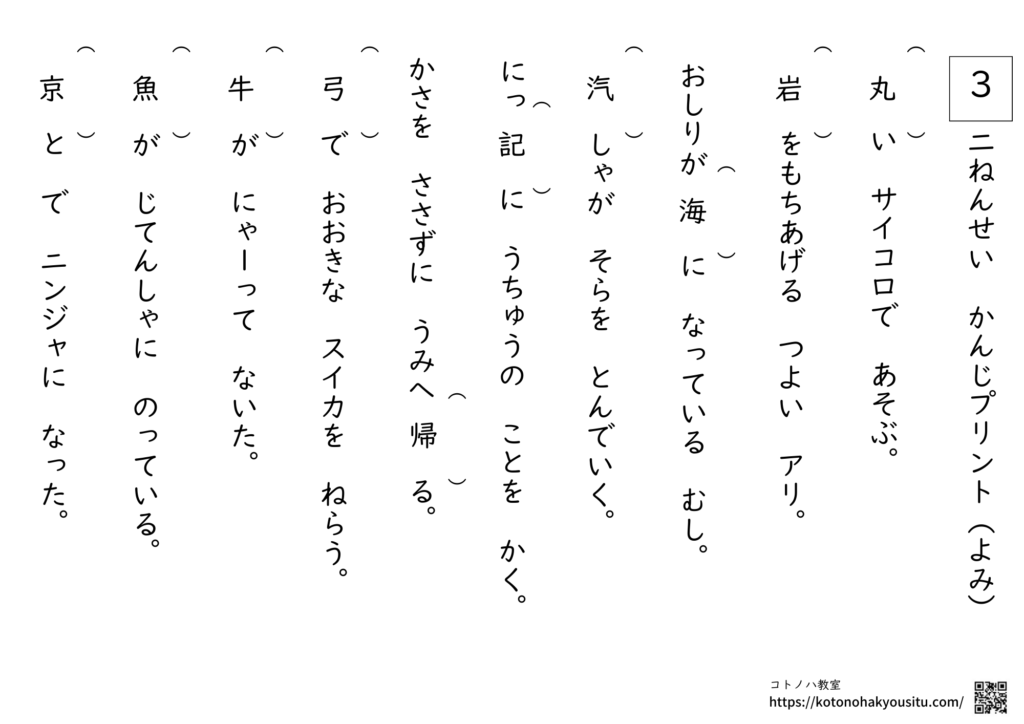 3 二ねんせい かんじプリント（よみ）
丸い サイコロで あそぶ。
（ ）
岩をもちあげる つよい アリ。
（ ）
おしりが 海に なっている むし。
（ ）
汽しゃが そらを とんでいく。
（ ）
にっ記に うちゅうの ことを かく。
（ ）
かさを ささずに うみへ 帰る。
（ ）
弓で おおきな スイカを ねらう。
（ ）
牛が にゃーって ないた。
（ ）
魚が じてんしゃに のっている。
（ ）
京とで ニンジャに なった。
（ ）
コトノハ教室
https://kotonohakyousitu.com/